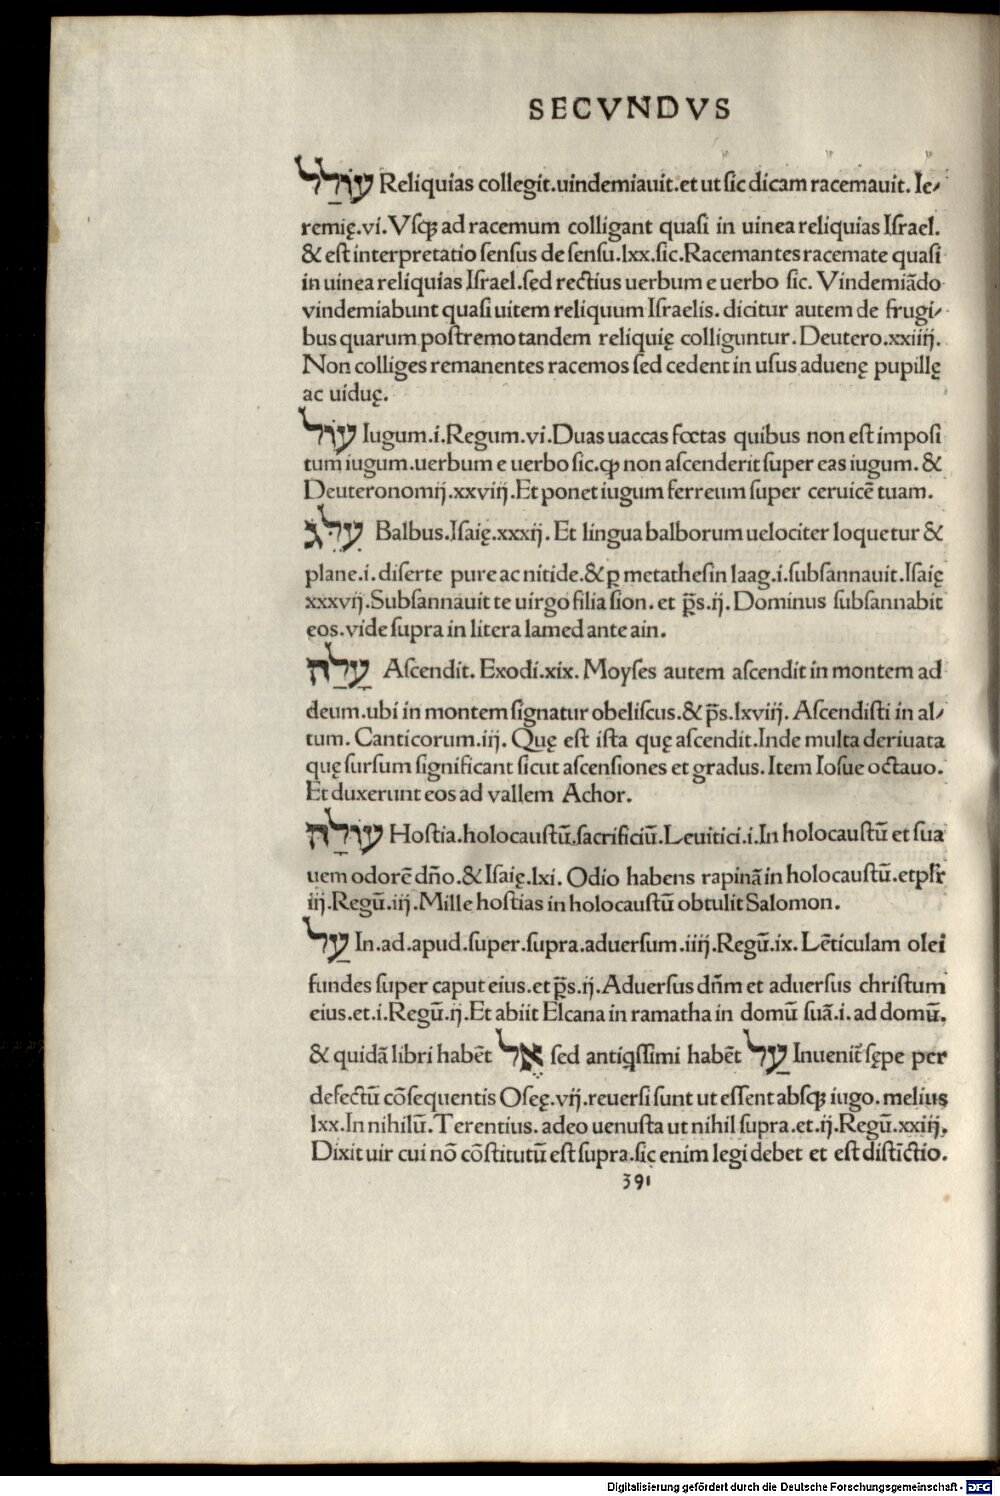 SECVNDVS
עוֹלַל Reliquias collegit.uindemiauit.et ut sic dicam racemauit. Ie-
remię.vi.Vsq; ad racemum colligant quasi in uinea reliquias Israel.
& est interpretatio sensus de sensu.lxx.sic.Racemantes racemate quasi
in uinea reliquias Israel.sed rectius uerbum e uerbo sic. Vindemiādo
vindemiabunt quasi uitem reliquum Israelis. dicitur autem de frugi-
bus quarum postremo tandem reliquię colliguntur. Deutero.xxiiij.
Non colliges remanentes racemos sed cedent in usus aduenę pupillę
ac uiduę.
עוֹל Iugum.i.Regum.vi.Duas uaccas fœtas quibus non est imposi
tum iugum.uerbum e uerbo sic.qꝫ non ascenderit super eas iugum. &
Deuteronomij.xxviij.Et ponet iugum ferreum super ceruicē tuam.
עִלֵּג Balbus.Isaię.xxxij. Et lingua balborum uelociter loquetur &
plane.i.diserte pure ac nitide.& ꝑ metathesin laag.i.subsannauit.Isaię
xxxvij.Subsannauit te uirgo filia sion. et p̄s.ij. Dominus subsannabit
eos.vide supra in litera lamed ante ain.
עָלַה Ascendit. Exodi.xix. Moyses autem ascendit in montem ad
deum.ubi in montem signatur obeliscus.& p̄s.lxviij. Ascendisti in al-
tum. Canticorum.iij. Quę est ista quę ascendit.Inde multa deriuata
quę sursum significant sicut ascensiones et gradus. Item Iosue octauo.
Et duxerunt eos ad vallem Achor.
עוֹלַה Hostia.holocaustū.sacrificiū.Leuitici.i.In holocaustū et sua
uem odorē dño.& Isaię.lxi. Odio habens rapinā in holocaustū.et
iij.Regū.iij.Mille hostias in holocaustū obtulit Salomon.
עַל In.ad.apud.super.supra.aduersum.iiij.Regū.ix. Lēticulam olei
fundes super caput eius.et p̄s.ij.Aduersus dñm et aduersus christum
eius.et.i.Regū.ij.Et abiit Elcana in ramatha in domū suā.i. ad domū.
& quidā libri habēt אֶל sed antiqssimi habēt עַל Inuenit̄ sępe per
defectū cōsequentis Oseę.vij.reuersi sunt ut essent absq; iugo. melius
lxx.In nihilū.Terentius. adeo uenusta ut nihil supra.et.ij.Regū.xxiij.
Dixit uir cui nō cōstitutū est supra.sic enim legi debet et est distīctio.
391
Digitalisierung gefördert durch die Deutsche Forschungsgemeinschaft - DFG